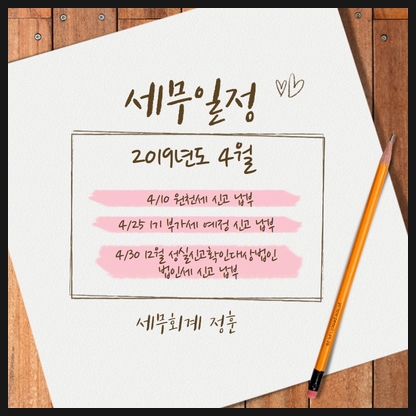 세무일정
2019년도 4월
4/10 원천세 신고 납부
4/25 1기 부가세 예정 신고 납부
4/30 12월 성실신고확인대상법인
법인세 신고 납부
세무회계 정훈